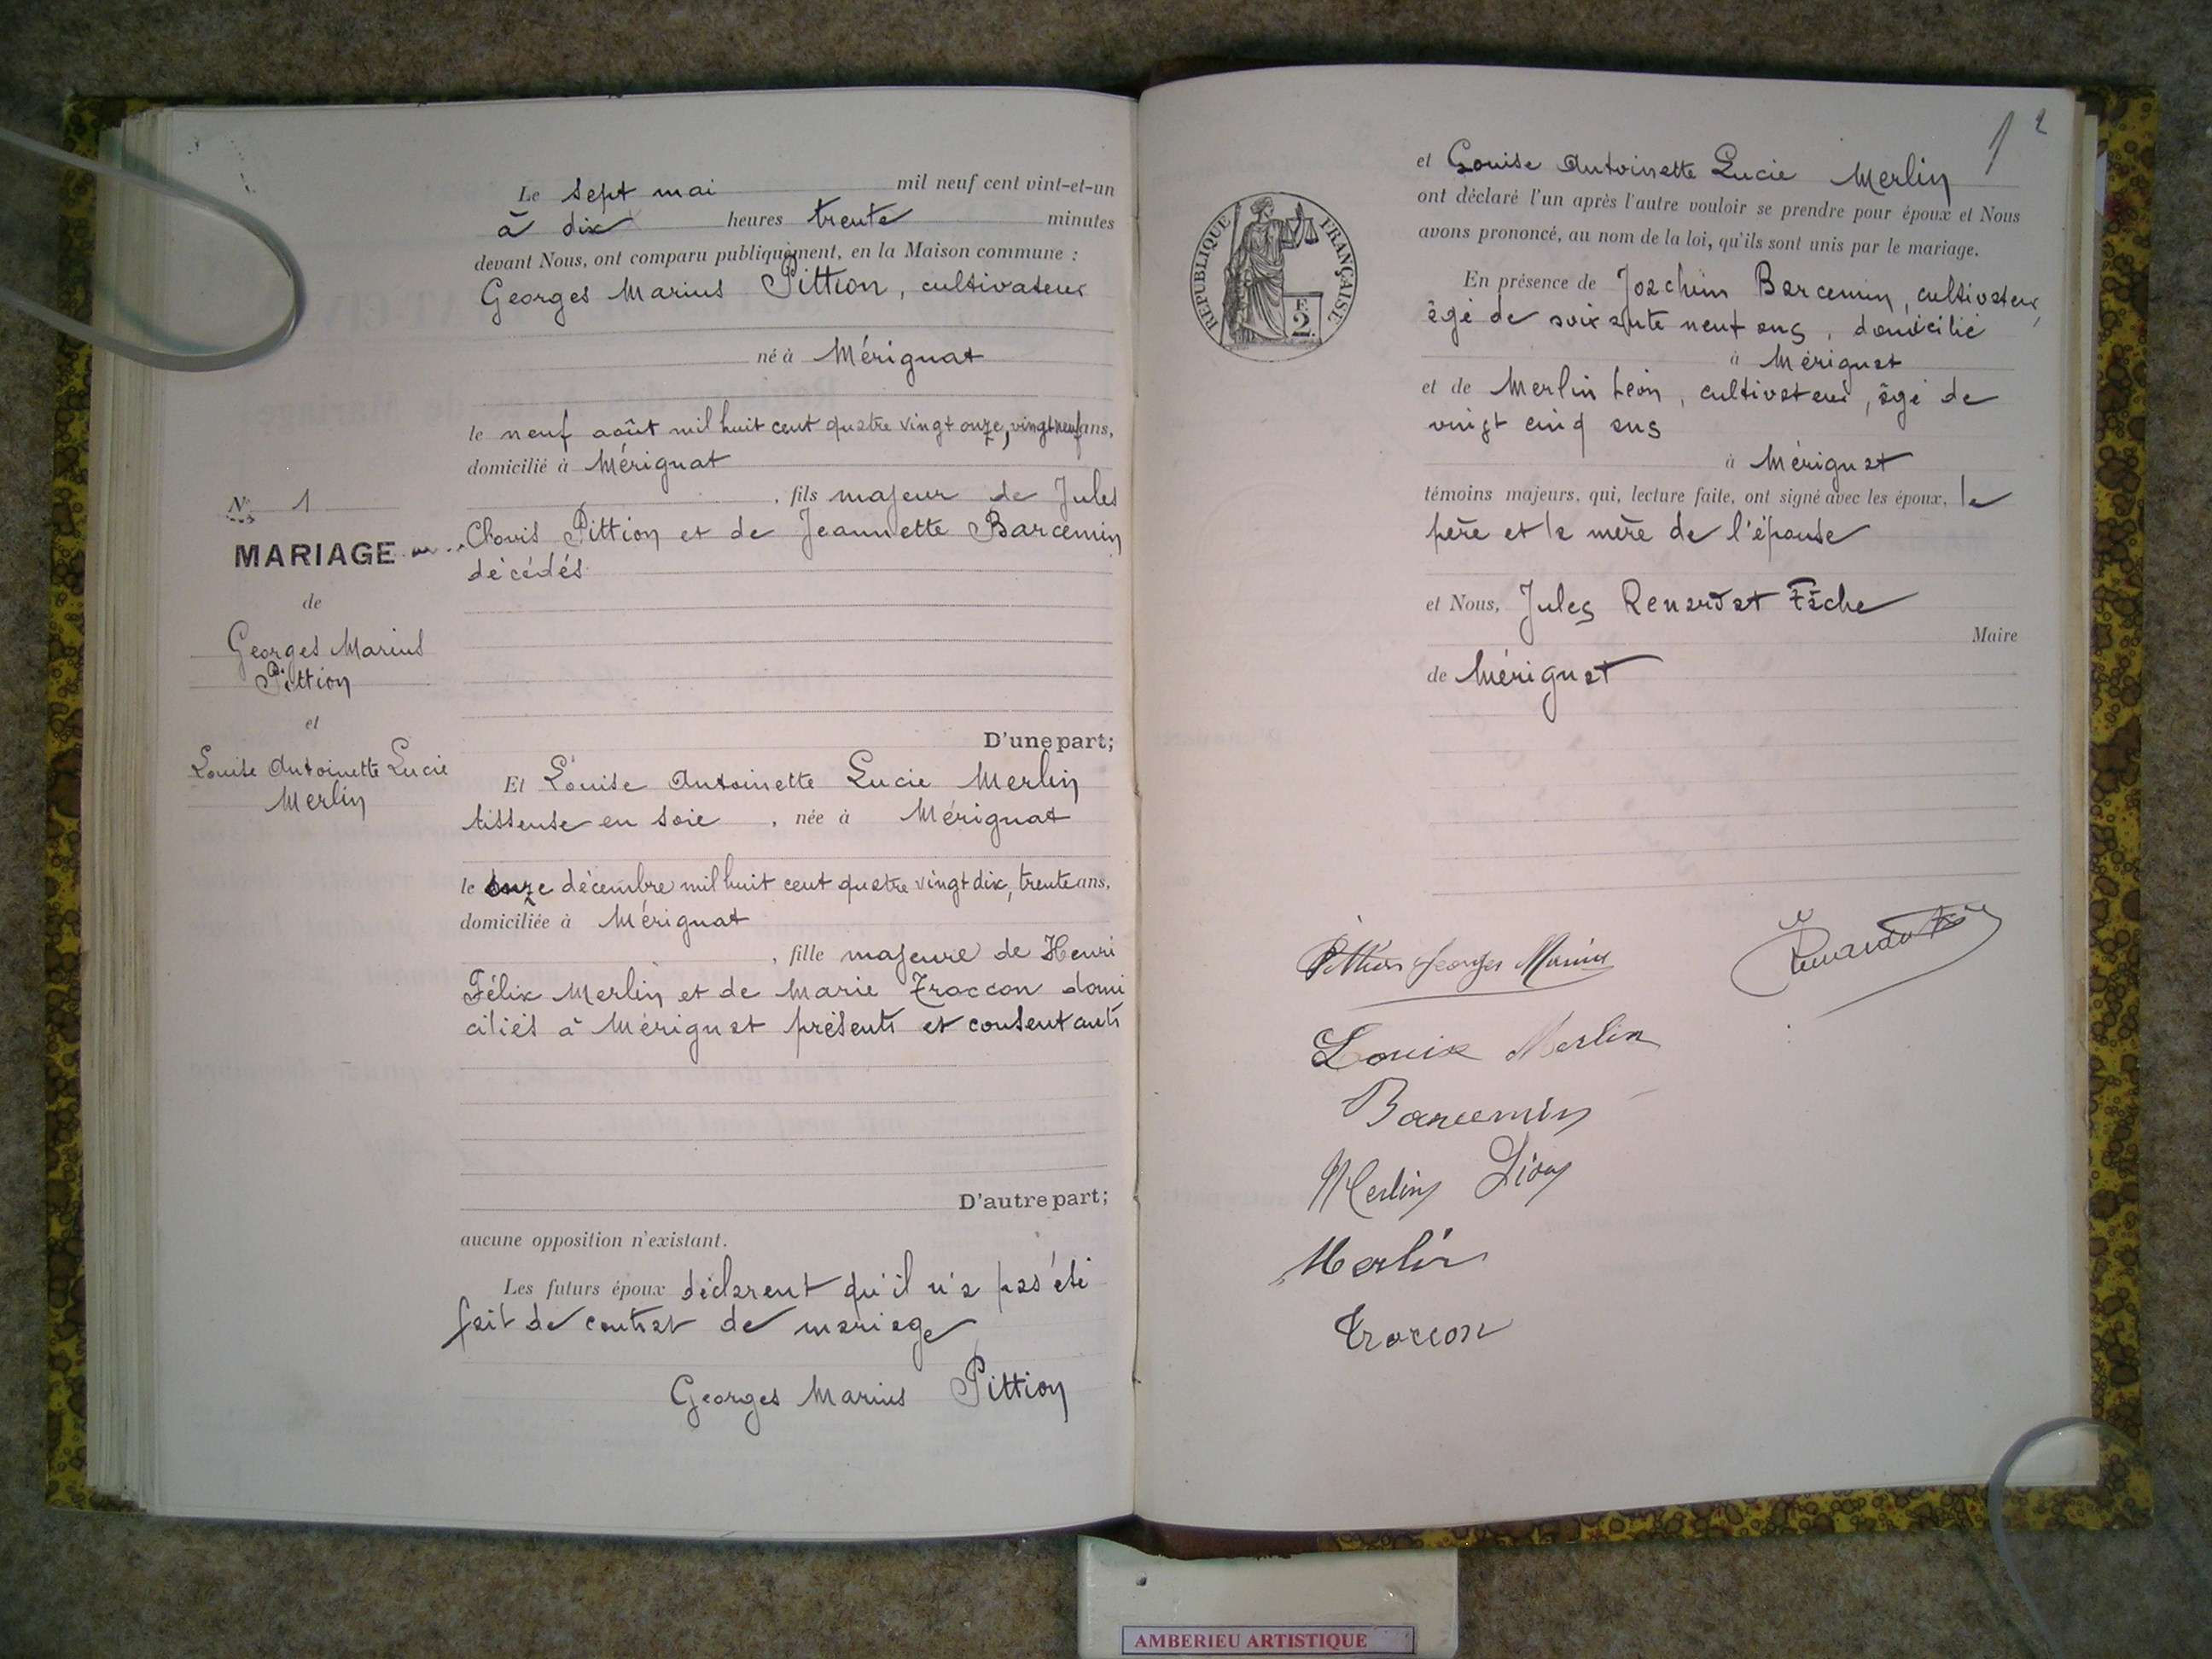 Le sept mai mil neuf cent vint-et-un
à dix heures trente minutes
devant Nous, ont comparu publiquement, en la Maison commune :
Georges Marius Pittion, cultivateur
né à Mérignat
le neuf août mil huit cent quatre vingt onze, vingt neuf ans,
domicilié à Mérignat
, fils majeur de Jules
Clovis Pittion et de Jeannette Barcemin
décédés
N° 1
MARIAGE
de
Georges Marius
Pittion
et
Louise Antoinette Lucie
Merlin
D'une part;
Et Louise Antoinette Lucie Merlin
tisseuse en soie, née à Mérignat
le onze décembre mil huit cent quatre vingt dix, trente ans,
domiciliée à Mérignat
, fille majeure de Henri
Félix Merlin et de Marie Traccon domi
ciliés à Mérignat présents et consentants
D'autre part;
aucune opposition n'existant.
Les futurs époux déclarent qu'il n'a pas été
fait de contrat de mariage
Georges Marius Pittion
1 2
et Louise Antoinette Lucie Merlin
ont déclaré l'un après l'autre vouloir se prendre pour époux et Nous
avons prononcé, au nom de la loi, qu'ils sont unis par le mariage.
REPUBLIQUE FRANÇAISE
F.
2
En présence de Joachim Barcemin, cultivateur,
âgé de soixante neuf ans, domicilié
à Mérignat
et de Merlin Léon, cultivateur, âgé de
vingt cinq ans
à Mérignat
témoins majeurs, qui, lecture faite, ont signé avec les époux, le
père et la mère de l'épouse
et Nous, Jules Renardat Fâche
Maire
de Mérignat
Pittion Georges Marius
Louise Merlin
Barcemin
Merlin Léon
Merlin
Traccon
AMBERIEU ARTISTIQUE